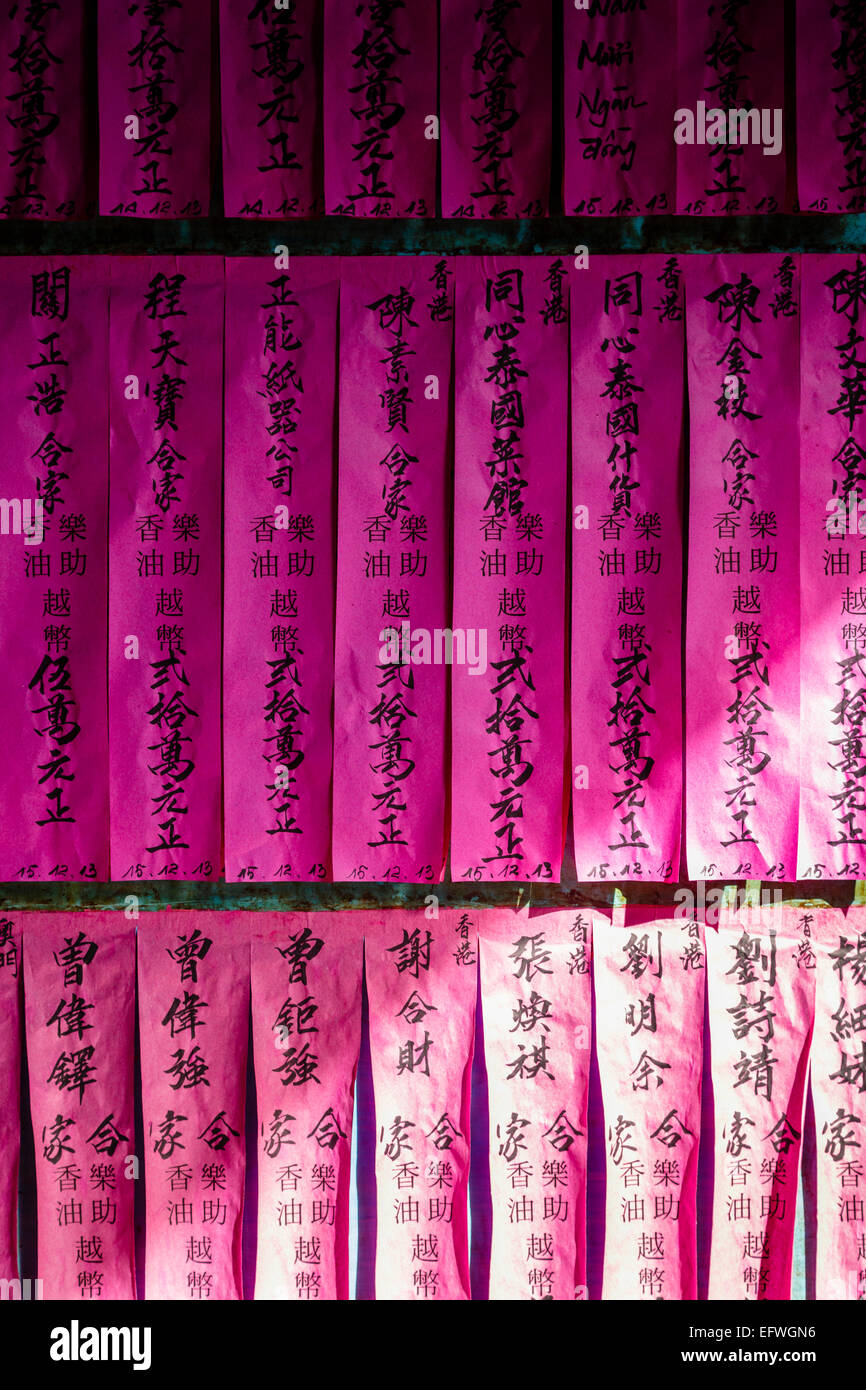 拾萬元正
14.12.13
拾萬元正
14.12.13
伍萬元正
14.12.13
壹拾萬元正
14.12.13
壹拾萬元正
14.12.13
Năm
Mươi
Ngàn
đồng
15.12.13
壹拾萬元正
15.12.13
拾萬元正
15.12.13
關正浩合家
樂助
香油
越幣
伍萬元正
15.12.13
程天寶合家
樂助
香油
越幣
弍拾萬元正
15.12.13
正能紙器公司
樂助
香油
越幣
弍拾萬元正
15.12.13
香港
陳素賢合家
樂助
香油
越幣
弍拾萬元正
15.12.13
香港
同心泰國菜館
樂助
香油
越幣
弍拾萬元正
15.12.13
香港
同心泰國什貨
樂助
香油
越幣
弍拾萬元正
15.12.13
香港
陳金枝合家
樂助
香油
越幣
弍拾萬元正
15.12.13
陳文華合家
樂助
香油
越幣
弍拾萬元正
15.12.13
澳門
曾偉鐸
合家
樂助
香油
越幣
曾偉強
合家
樂助
香油
越幣
曾鉅強
合家
樂助
香油
越幣
香港
謝合財
合家
樂助
香油
越幣
香港
張煥祺
合家
樂助
香油
越幣
香港
劉明余
合家
樂助
香油
越幣
香港
劉詩靖
合家
樂助
香油
越幣
楊細妹
合家
樂助
香油
越幣
alamy
Image ID: EFWGN6
www.alamy.com